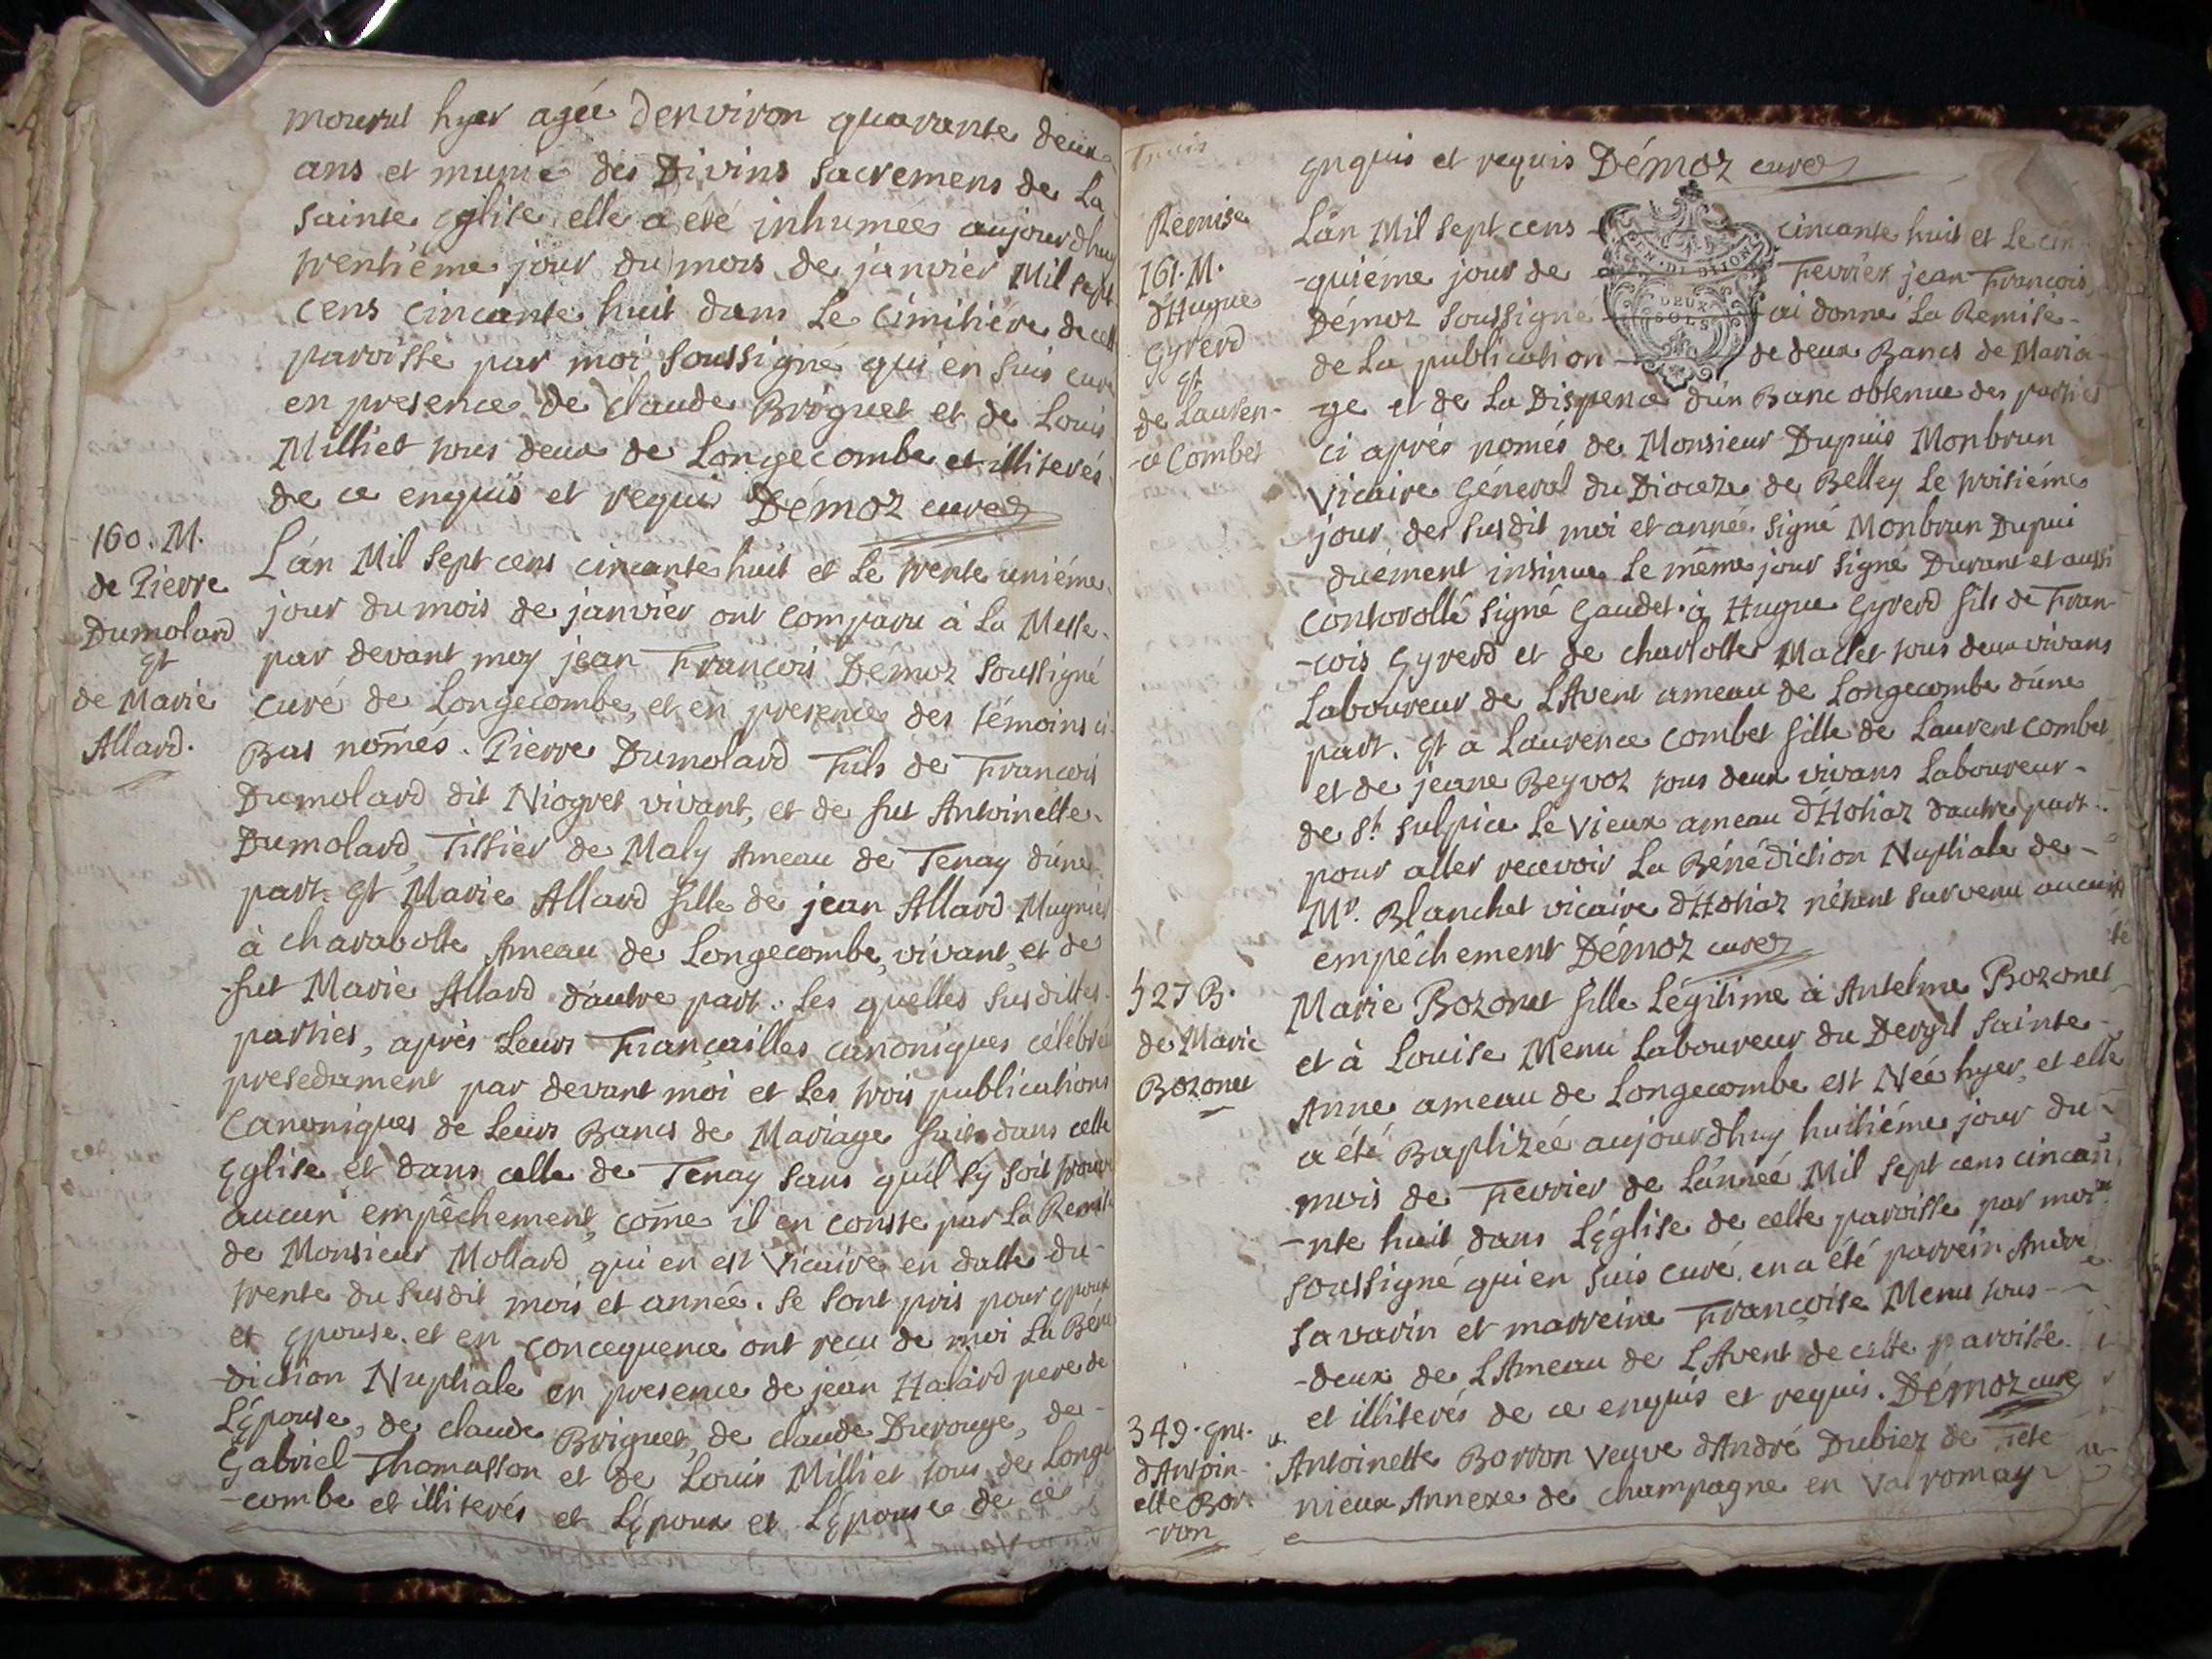 mourut hyer agée denviron quarante deux
ans et munie des Divins Sacremens de La
Sainte Eglise elle a eté inhumée aujourdhuy
trentiéme jour du mois de janvier Mil Sept
cens cincante huit dans Le Cimitiére de cette
paroisse par moi Soussigné qui en Suis curé
en presence de claude Broguet et de Louis
Milliet tous deux de Longecombe et illiterés
de ce enquis et requi Démoz curé
160. M.
de Pierre
Dumolard
Et
de Marie
Allard.
L'an Mil Sept cens cincante huit et Le trente uniéme
jour du mois de janvier ont comparu à La Messe
par devant moy jean François Démoz Soussigné
curé de Longecombe, et en presence des témoins ci
Bas nom̄és. Pierre Dumolard Fils de Francois
Dumolard dit Niogret vivant, et de fut Antoinette
Dumolard, Tissier de Maly Ameau de Tenay d'une
part. Et Marie Allard fille de jean Allard Mugnier
à charabotte Ameau de Longecombe, vivant, et de
fut Marie Allard d'autre part. Les quelles Susdittes
parties, aprés Leurs Francailles canoniques célébré
presedament par devant moi et Les trois publications
Canoniques de Leurs Bancs de Mariage faites dans cette
Eglise et dans celle de Tenay Sans qu'il Sy Soit trouvé
aucun empêchement, com̄e il en conste par La Remise
de Monsieur Mollard qui en est Vicaire en datte du
trente du Susdit mois et année. Se Sont pris pour epoux
et Epouse. et en concequence ont recu de moi La Béné
-diction Nuptiale en presence de jean Halard pere de
L'Epouse, de claude Briguet, de claude Durouge, de
Gabriel Thomasson et de Louis Milliet tous de Longe
-combe et illiterés et L'Epoux et L'Epouse de ce
Enquis et requis Démoz curé
Remise
161. M.
d'Hugue
Gyrerd
Et
de Lauren-
-ce Combet
L'an Mil Sept cens cincante huit et Le cin
-quiéme jour de Fevrier jean Francois
Démoz Soussigné ai donné La Remise
de La publication de deux Bancs de Maria-
-ge et de La Dispence d'un Banc obtenue des parties
ci aprés només de Monsieur Dupuis Monbrun
Vicaire Géneral du Dioceze de Belley Le troisiéme
jour des Susdit moi et année Signé Monbrun Dupui
duëment insinue Le même jour Signé Durant et aussi
controllé Signé Gaudet. à Hugue Gyrerd fils de Fran-
-cois Gyrerd et de charlotte Maclet tous deux vivans
Laboureur de L'Avent ameau de Longecombe d'une
part. Et a Laurence Combet fille de Laurent Combet
et de jeane Beyvoz tous deux vivans Laboureur
de St. Sulpice Le Vieux ameau d'Hotiaz d'autre part.
pour aller recevoir La Bénédiction Nuptiale de
Mr. Blanchet vicaire d'Hotiaz n'etant Survenu aucun
empéchement Démoz curé
527 B.
de Marie
Bozonet
Marie Bozonet fille Légitime à Antelme Bozonet
et à Louise Menu Laboureur du Sainte
Anne ameau de Longecombe est Née hyer, et elle
a été Baptizée aujourdhuy huitiéme jour du
mois de Fevrier de L'année Mil Sept cens cincan
-nte huit dans L'Eglise de cette paroisse par moi
Soussigné qui en Suis curé. en a été parrein André
Savarin et marreine Francoise Menu tous
-deux de L'Ameau de L'Avent de cette paroisse
et illiterés de ce enquis et requis. Démoz curé
349. Ent.
d'Antoin-
ette Bor-
-ron
Antoinette Borron Veuve d'André Dubiez de
nieux Annexe de champagne en Valromay